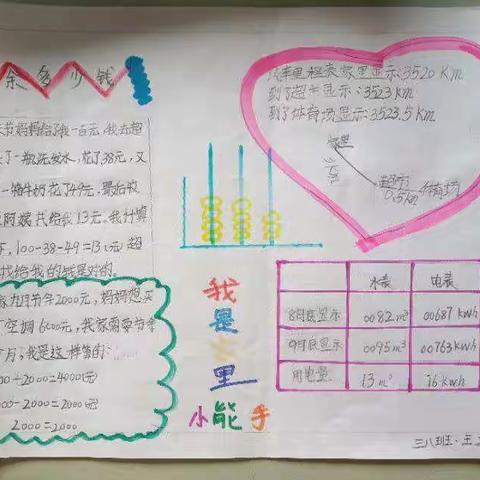 余多少钱
节妈妈给了我一百元,我去超
了一瓶洗发水,花了38元,又
一箱牛奶花了49元,最后收
阿姨共给我13元。我计算
下,100-38-49=13(元)超
找给我的钱是对的。
家九月节余2000元,妈妈想买
空调6000元,我家需要节余
个月,我是这样算的:
00+2000=4000元
00-2000=2000元
2000=2000
汽车里程表家里显示:3520 Km
到了超市显示:3523 km
到了体育场显示:3523.5 km
家里
超市
0.5km
体育场
我是家里
小能手
水表 电表
8月底显示 0082 m³ 00687 kWh
9月底显示 0095 m³ 00763 kWh
用电量 13 m³ 76 kWh
三八班·王